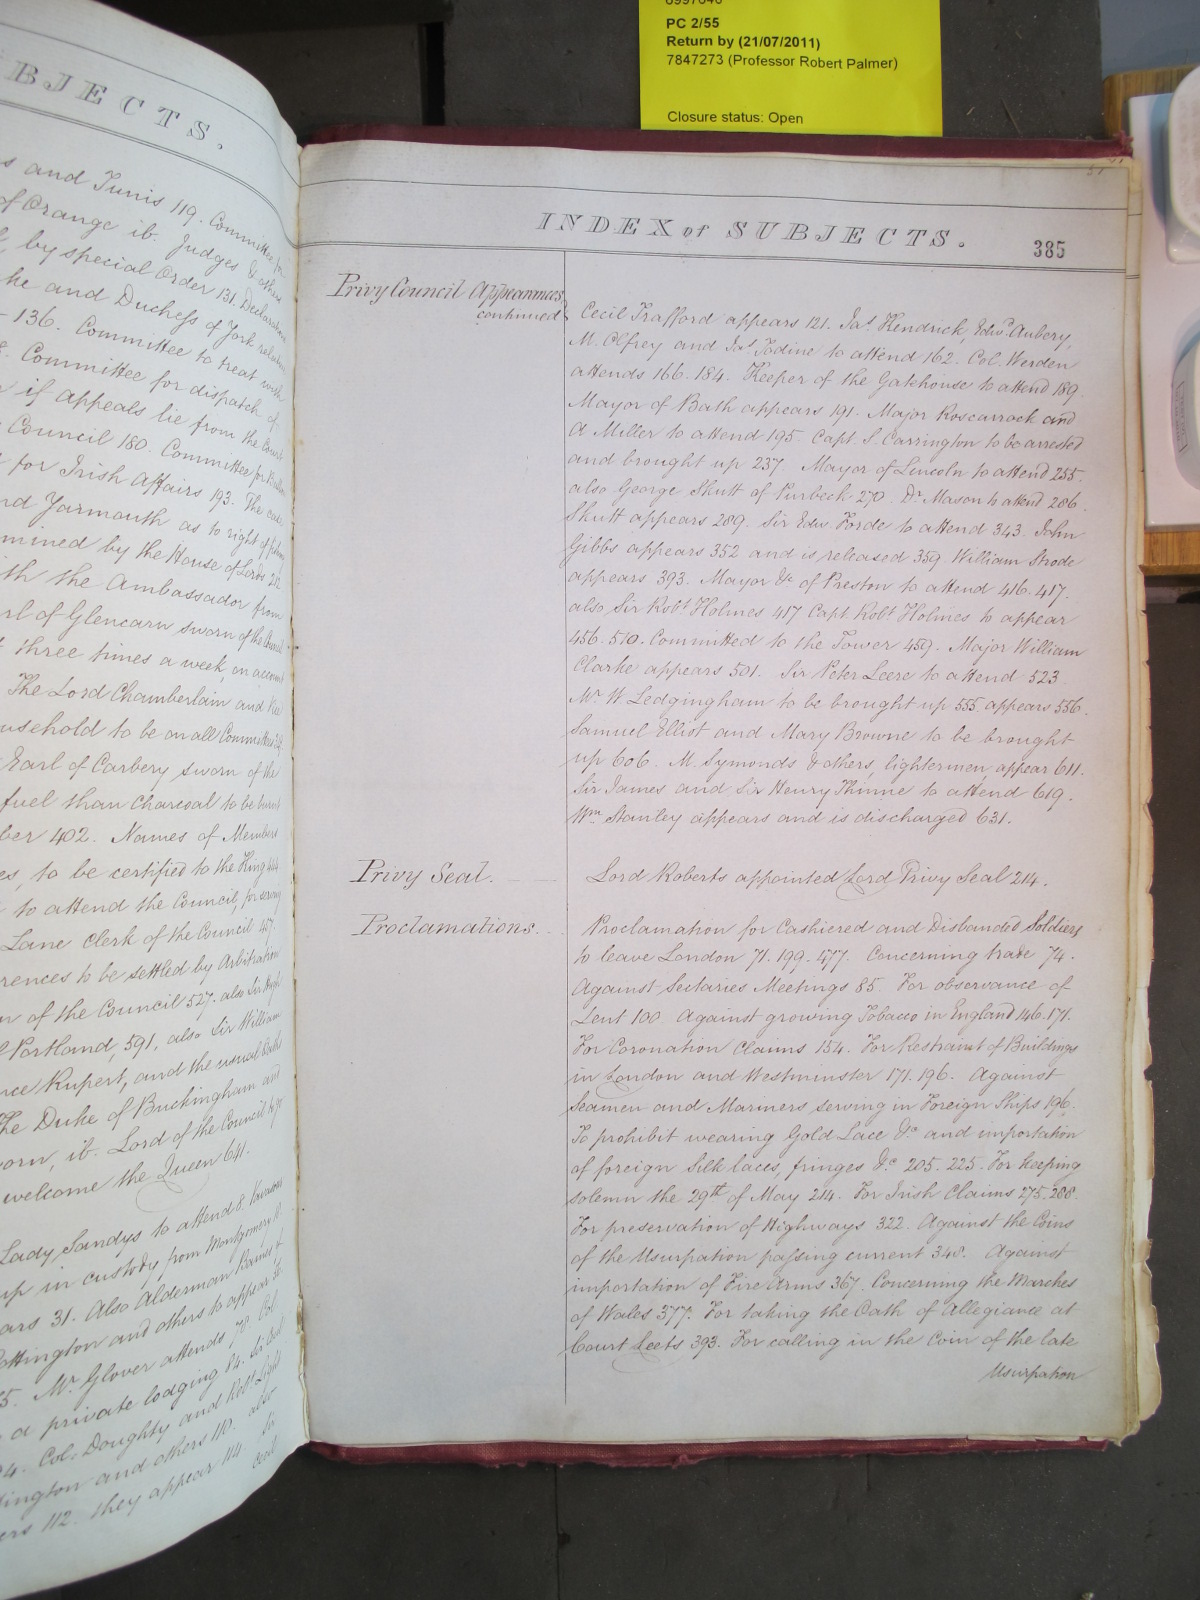 PC 2/55
Return by (21/07/2011)
7847273 (Professor Robert Palmer)
Closure status: Open
BJECTS.
s and Tunis 119. Committee for
of Orange ib. Judges & others
by special Order 131. Declaration
he and Duchess of York
136. Committee to treat with
Committee for dispatch of
if appeals lie from the Court
Council 180. Committee for
for Irish Affairs 193. The
nd Yarmouth as to right of
mined by the House of Lords
ith the Ambassador from
rl of Glencarn sworn of the Council
three times a week, on account
The Lord Chamberlain and Vice
usehold to be on all Committees
Earl of Carbery sworn of the
fuel than charcoal to be burnt
ber 402. Names of Members
es, to be certified to the King
to attend the Council, for
Lane Clerk of the Council
rences to be settled by Arbitration
n of the Council 527. also Sir Hugh
Portland, 591, also Sir William
nce Rupert, and the usual
The Duke of Buckingham and
orn, ib. Lord of the Council to go
welcome the Queen 641.
Lady Sandys to attend 8. Vavasour
up in custody from Montgomery
ars 31. Also Alderman
ottington and others to appear
5. Mr Glover attends 78. Col.
a private lodging 84. Sir
4. Col. Doughty and Robt Light
ington and others 110. also
ers 112. they appear 114. Sir
INDEX of SUBJECTS.
385
Privy Council Appearances
continued
Cecil Trafford appears 121. Jas. Hendrick, Edwd. Aubery,
M. Olfrey and Jas. Jodine to attend 162. Col. Werden
attends 166. 184. Keeper of the Gatehouse to attend 189.
Mayor of Bath appears 191. Major Roscarrock and
A Miller to attend 195. Capt. S. Carrington to be arrested
and brought up 237. Mayor of Lincoln to attend 255.
also George Skutt of Purbeck 270. Dr. Mason to attend 286.
Skutt appears 289. Sir Edw. Forde to attend 343. John
Gibbs appears 352 and is released 359. William Strode
appears 393. Mayor &c of Preston to attend 416. 417.
also Sir Robt. Holmes 417 Capt. Robt. Holmes to appear
456. 510. Committed to the Tower 459. Major William
Clarke appears 501. Sir Peter Leere to attend 523.
Mr. W. Ledgingham to be brought up 555. appears 556.
Samuel Elliot and Mary Browne to be brought
up 606. M. Symonds & others, lightermen, appear 611.
Sir James and Sir Henry Thinne to attend 619.
Wm. Stanley appears and is discharged 631.
Privy Seal.
Lord Roberts appointed Lord Privy Seal 214.
Proclamations.
Proclamation for Cashiered and Disbanded Soldiers
to leave London 71. 199. 477. Concerning trade 74.
Against Sectaries Meetings 85. For observance of
Lent 100. Against growing Tobacco in England 146. 171.
For Coronation Claims 154. For Restraint of Buildings
in London and Westminster 171. 196. Against
Seamen and Mariners serving in Foreign Ships 196.
To prohibit wearing Gold Lace &c and importation
of foreign Silk laces, fringes &c. 205. 225. For keeping
solemn the 29th of May 214. For Irish Claims 275. 288.
For preservation of Highways 322. Against the Coins
of the Usurpation passing current 348. Against
importation of Fire Arms 367. Concerning the Marches
of Wales 377. For taking the Oath of Allegiance at
Court Leets 393. For calling in the Coin of the late
Usurpation